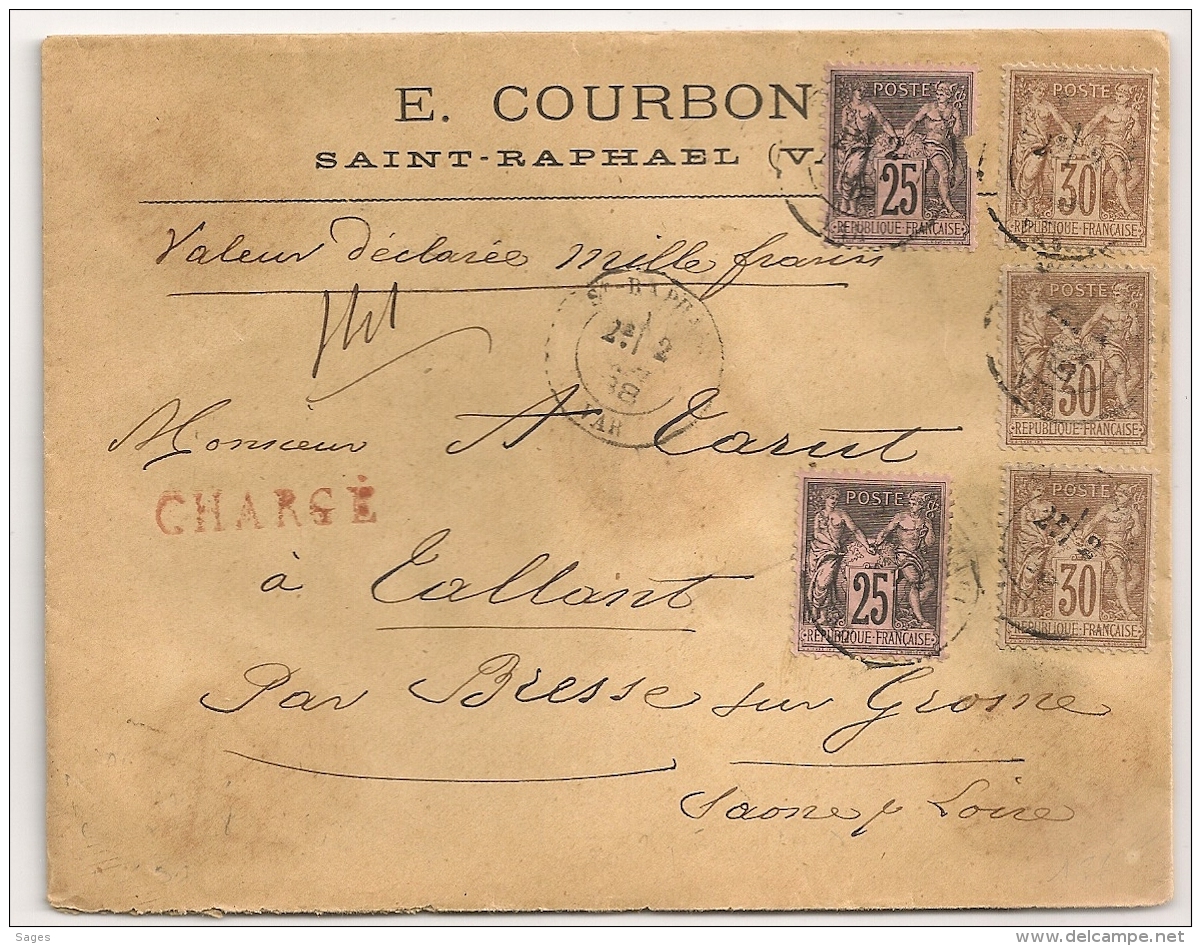 E. COURBON
SAINT-RAPHAEL (VA
POSTE
25
REPUBLIQUE FRANÇAISE
POSTE
30
REPUBLIQUE FRANÇAISE
Valeur déclarée Mille francs
ST-RAPHA
2E 2
VAR
30
REPUBLIQUE FRANÇAISE
Monsieur A Tarut
CHARGÉ
POSTE
25
REPUBLIQUE FRANÇAISE
POSTE
30
REPUBLIQUE FRANÇAISE
à Tallant
Par Bresse sur Grosne
Saone & Loire
Sages
www.delcampe.net